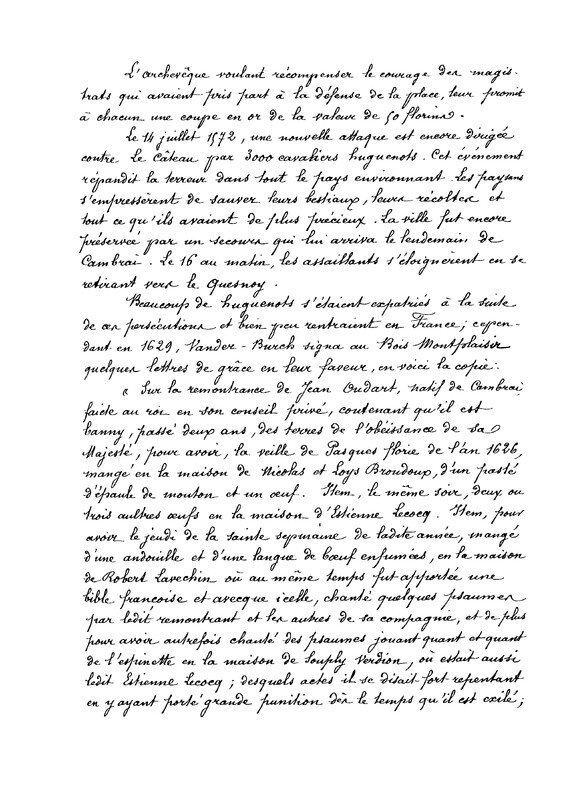 L'archevêque voulant récompenser le courage des magis-
trats qui avaient pris part à la défense de la place, leur promit
à chacun une coupe en or de la valeur de 50 florins.
Le 14 juillet 1572, une nouvelle attaque est encore dirigée
contre le Câteau par 3000 cavaliers huguenots. Cet événement
répandit la terreur dans tout le pays environnant. Les paysans
s'empressèrent de sauver leurs bestiaux, leurs récoltes et
tout ce qu'ils avaient de plus précieux. La ville fut encore
préservée par un secours qui lui arriva le lendemain de
Cambrai. Le 16 au matin, les assaillants s'éloignèrent en se
retirant vers le Quesnoy.
Beaucoup de huguenots s'étaient expatriés à la suite
de ces persécutions et bien peu rentraint en France; cepen-
dant en 1629, Vander-Burch signa au Bois Montplaisir
quelques lettres de grâce en leur faveur, en voici la copie.
« Sur la remontrance de Jean Oudart, natif de Cambrai
faicte au roi en son conseil privé, contenant qu'il est
banny, passé deux ans, des terres de l'obéissance de sa
Majesté, pour avoir, la veille de Pasques florie de l'an 1626,
mangé en la maison de Nicolas et Loys Broudoux, d'un pasté
d'épaule de mouton et un œuf. Item, le même soir, deux ou
trois aultres œufs en la maison d'Estienne Lecocq. Item, pour
avoir le jeudi de la sainte sepmaine de ladite année, mangé
d'une andouille et d'une langue de bœuf enfumées, en la maison
de Robert Lavechin où au même temps fut apportée une
bible francoise et avecque icelle, chanté quelques psaumes
par ledit remontrant et les autres de sa compagnie, et de plus
pour avoir autrefois chanté des psaumes jouant quant et quant
de l'espinette en la maison de Souply Verdion, où estait aussi
ledit Estienne Lecocq; desquels actes il se disait fort repentant
en y ayant porté grande punition dès le temps qu'il est exilé;